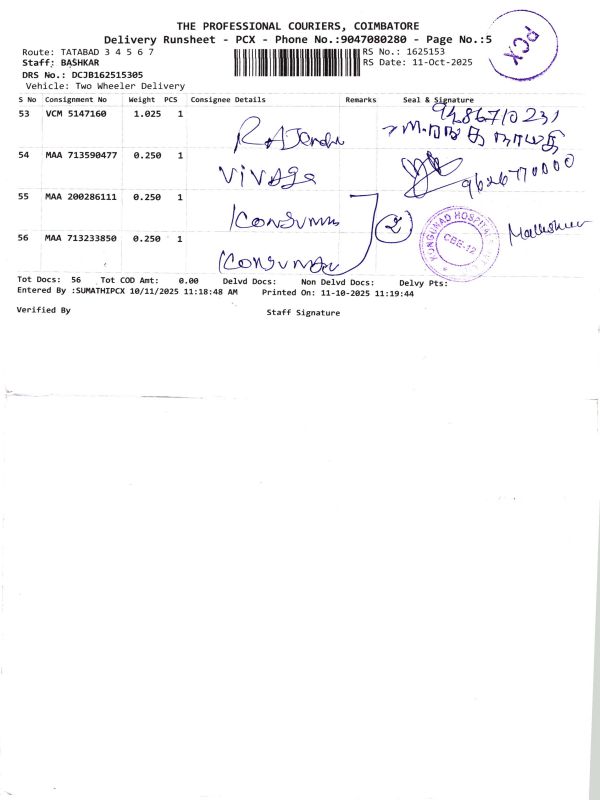 THE PROFESSIONAL COURIERS, COIMBATORE
Delivery Runsheet - PCX - Phone No.:9047080280 - Page No.:5
PCX
Route: TATABAD 3 4 5 6 7
RS No.: 1625153
Staff: BASHKAR
RS Date: 11-Oct-2025
DRS No.: DCJB162515305
Vehicle: Two Wheeler Delivery
S No Consignment No Weight PCS Consignee Details Remarks Seal & Signature
53 VCM 5147160 1.025 1
9486710231
54 MAA 713590477 0.250 1
9626770000
55 MAA 200286111 0.250 1
2
KONGUNAD HOSPITAL
CBE-12
56 MAA 713233850 0.250 1
Tot Docs: 56 Tot COD Amt: 0.00 Delvd Docs: Non Delvd Docs: Delvy Pts:
Entered By :SUMATHIPCX 10/11/2025 11:18:48 AM Printed On: 11-10-2025 11:19:44
Verified By Staff Signature